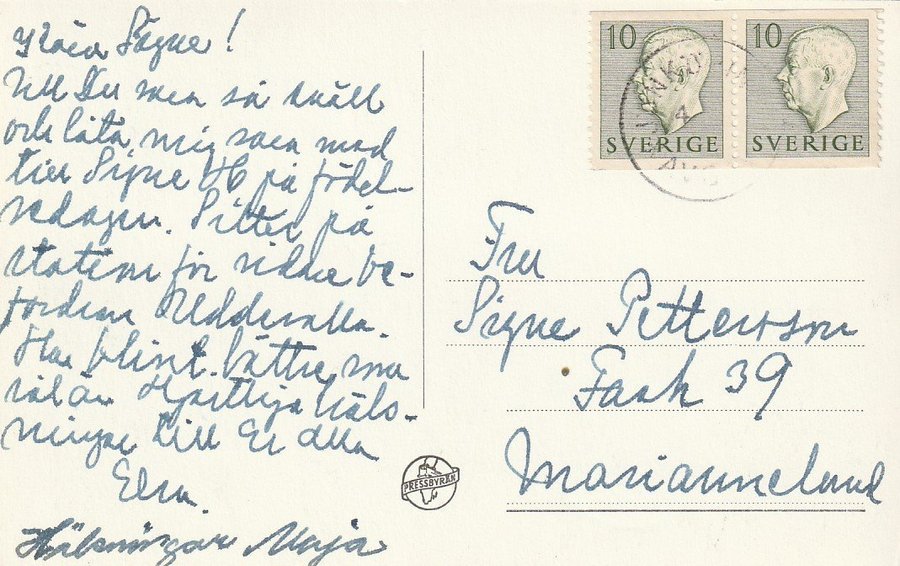 Kära Signe!
Vill Du vara så snäll
och låta mig vara med
till Signe H på födel-
sedagen. Sitter på
station för vidare be-
fordran Uddevalla.
Har blivit bättre, ma
Hjärtliga häls-
ningar till Er alla
Elsa.
Hälsningar Maja
10 10
SVERIGE SVERIGE
4
AUG
Fru
Signe Petterson
Fack 39
Mariannelund
PRESSBYRÅN